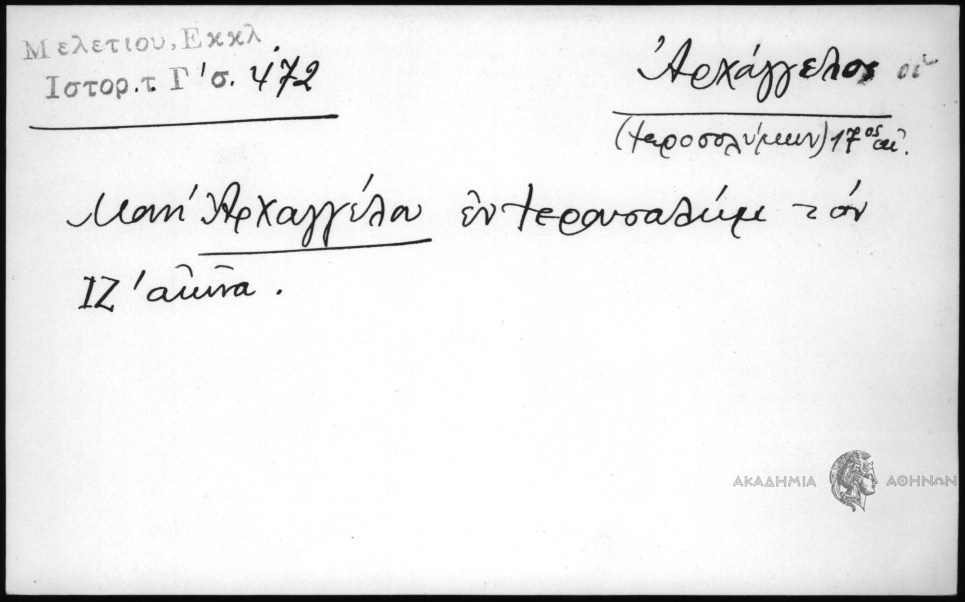 Μελετιου, Εκκλ
Ιστορ. τ. Γ' σ. 472
Ἀρχάγγελος οἱ
(Ἱεροσολύμων) 17ος αἰ.
Μονή Ἀρχαγγέλου ἐν Ἱερουσαλήμ τόν
ΙΖ' αἰῶνα.
ΑΚΑΔΗΜΙΑ ΑΘΗΝΩΝ